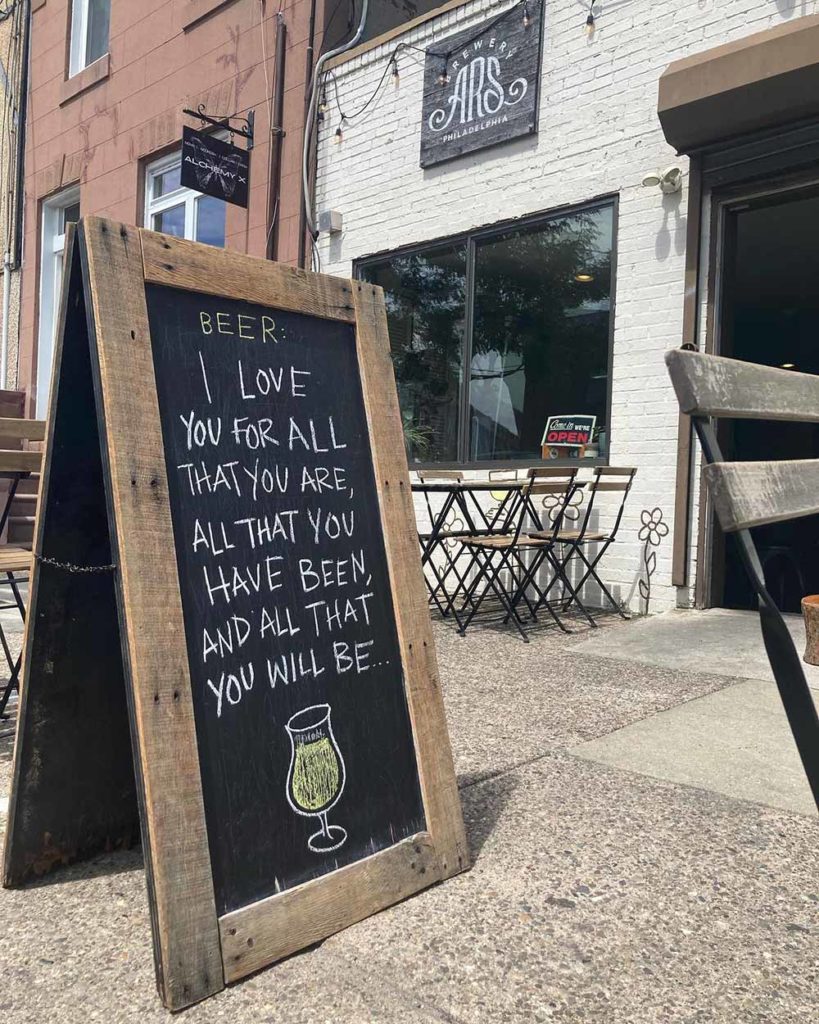 BREWERY
ARS
PHILADELPHIA
ALCHEMY X
BEER:
I LOVE
YOU FOR ALL
THAT YOU ARE,
ALL THAT YOU
HAVE BEEN,
AND ALL THAT
YOU WILL BE...
Come in WE'RE
OPEN